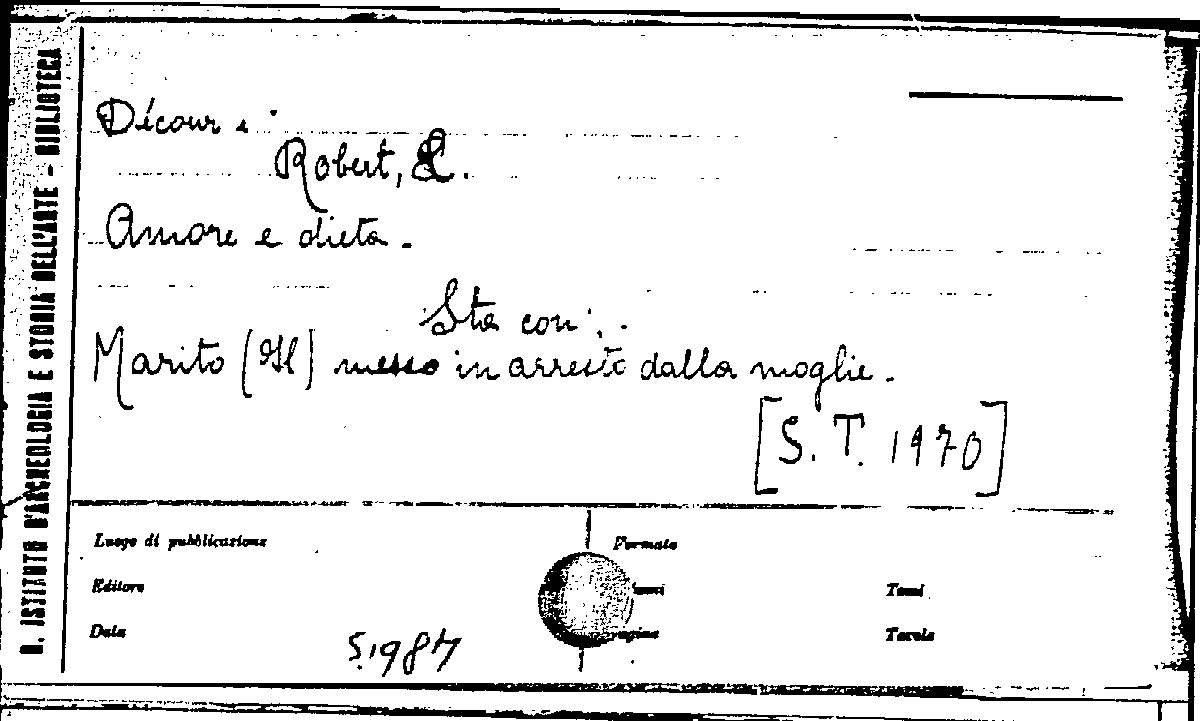 R. ISTITUTO D'ARCHEOLOGIA E STORIA DELL'ARTE - BIBLIOTECA
Décour
Robert, L.
Amore e dieta.
Sta con:
Marito (Il) messo in arresto dalla moglie.
[S. T. 1970]
Luogo di pubblicazione
Formato
Editore
Tomi
Data
Pagine
Tavole
S.1987